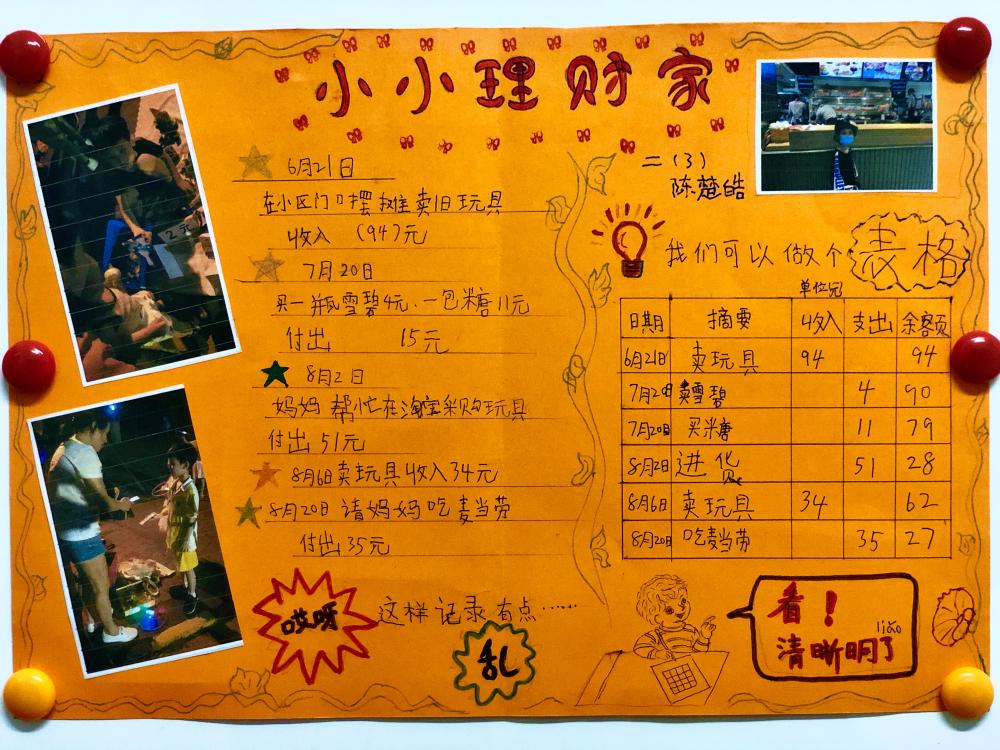 小小理财家
二(3)
陈楚皓
6月21日
在小区门口摆摊卖旧玩具
收入 (94)元
7月20日
买一瓶雪碧4元.一包米糖11元
付出 15元
8月2日
妈妈 帮忙在淘宝采购玩具
付出51元
8月6日卖玩具收入34元
8月20日 请妈妈吃麦当劳
付出35元
哎呀
这样记录有点……
乱
我们可以做个表格
单位元
日期 摘要 收入 支出 余额
6月21日 卖玩具 94 94
7月20日 雪碧 4 90
7月20日 买米糖 11 79
8月2日 进货 51 28
8月6日 卖玩具 34 62
8月20日 吃麦当劳 35 27
看!
liǎo
清晰明了
2元